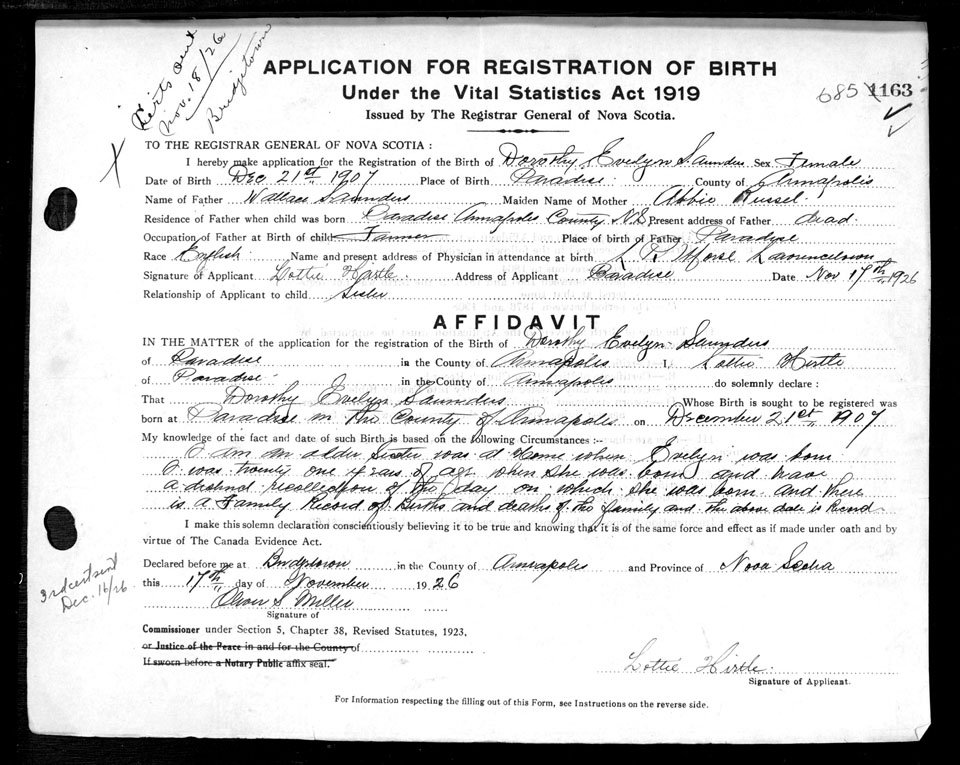 Certs sent
Nov. 18/26
Bridgetown
APPLICATION FOR REGISTRATION OF BIRTH
Under the Vital Statistics Act 1919
Issued by The Registrar General of Nova Scotia.
685 1163
TO THE REGISTRAR GENERAL OF NOVA SCOTIA:
I hereby make application for the Registration of the Birth of Dorothy Evelyn Saunders Sex Female
Date of Birth Dec 21st 1907 Place of Birth Paradise County of Annapolis
Name of Father Wallace Saunders Maiden Name of Mother Abbie Russel.
Residence of Father when child was born Paradise Annapolis County N.S. Present address of Father dead.
Occupation of Father at Birth of child Farmer Place of birth of Father Paradise
Race English Name and present address of Physician in attendance at birth Morse Lawrencetown
Signature of Applicant Lottie Hirtle. Address of Applicant Paradise Date Nov 17th 1926
Relationship of Applicant to child Sister
AFFIDAVIT
IN THE MATTER of the application for the registration of the Birth of Dorothy Evelyn Saunders
of Paradise in the County of Annapolis I, Lottie Hirtle
of Paradise in the County of Annapolis do solemnly declare:
That Dorothy Evelyn Saunders Whose Birth is sought to be registered was
born at Paradise in the County of Annapolis on December 21st, 1907
My knowledge of the fact and date of such Birth is based on the following Circumstances:--
I am an older Sister was at Home when Evelyn was born
I was twenty one years of age when she was born and have
a distinct recollection of the day on which she was born and there
is a Family Record of Births and deaths of the family and the above date is Record
I make this solemn declaration conscientiously believing it to be true and knowing that it is of the same force and effect as if made under oath and by
virtue of The Canada Evidence Act.
Declared before me at Bridgetown in the County of Annapolis and Province of Nova Scotia
this 17th day of November 1926
3rd cert sent
Dec. 16/26
Oliver S Miller
Signature of
Commissioner under Section 5, Chapter 38, Revised Statutes, 1923,
or Justice of the Peace in and for the County of
If sworn before a Notary Public affix seal.
Lottie Hirtle.
Signature of Applicant.
For Information respecting the filling out of this Form, see Instructions on the reverse side.